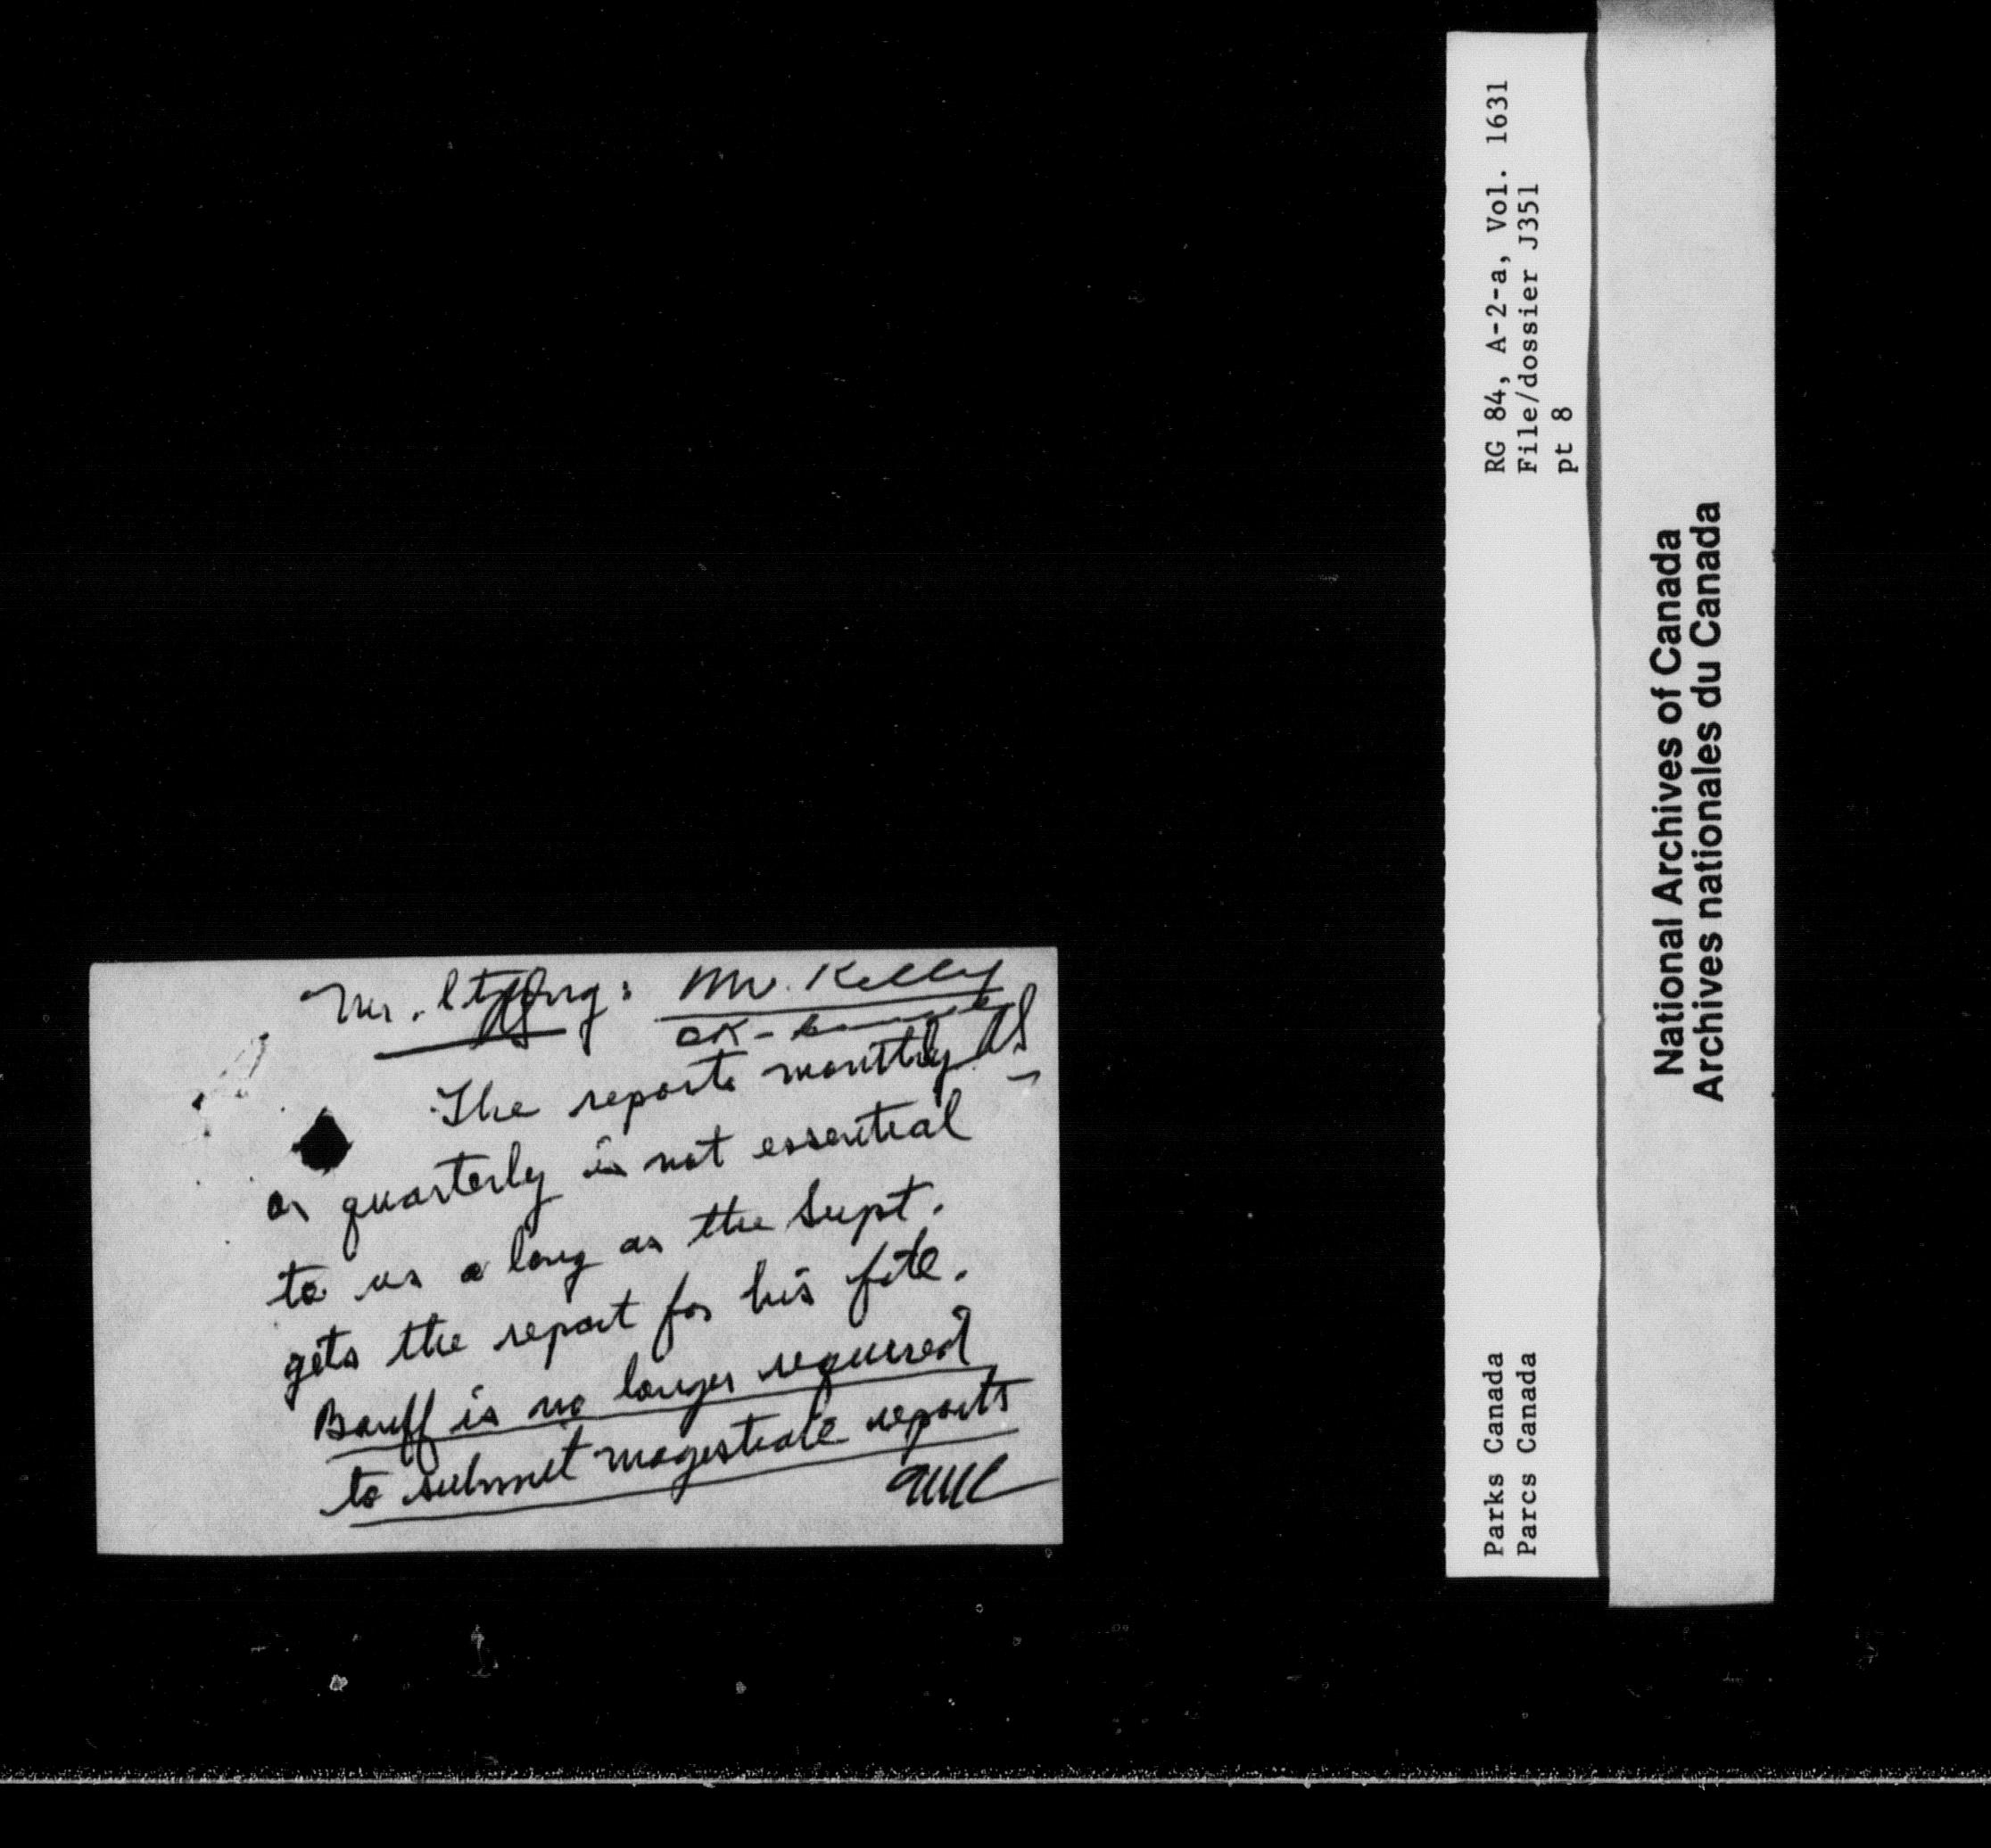 Mr.
Mr. Kelly
OK -
The reports monthly
or quarterly is not essential
to us a long as the Supt.
gets the report for his file.
Banff is no longer required
to submit magistrate reports
RG 84, A-2-a, Vol. 1631
File/dossier J351
pt 8
Parks Canada
Parcs Canada
National Archives of Canada
Archives nationales du Canada